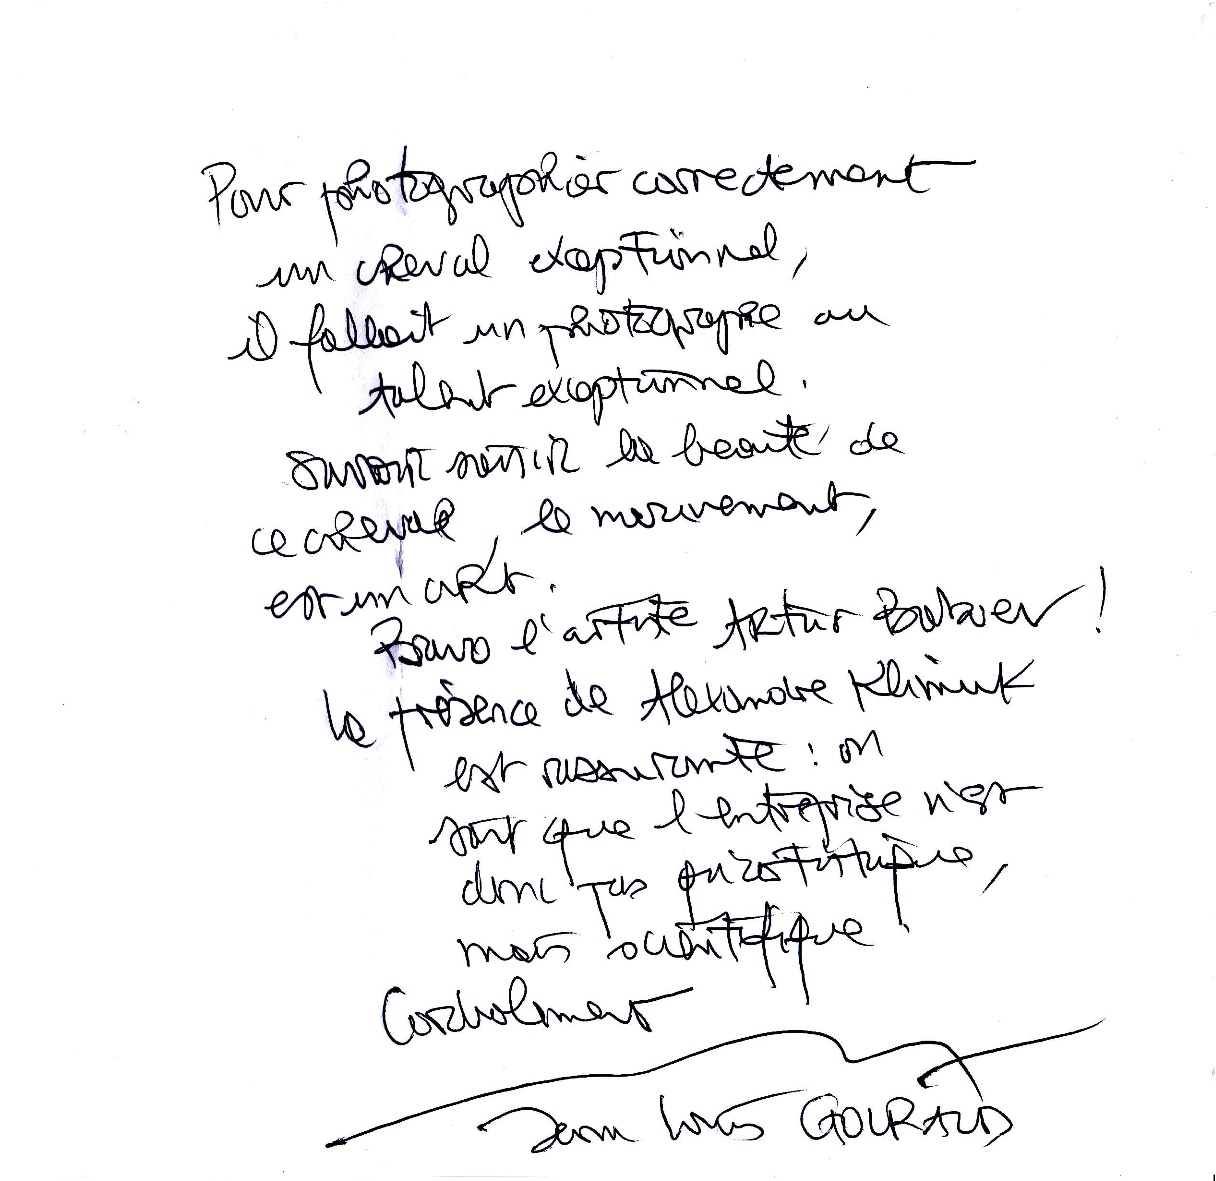 Pour photographier correctement
un cheval exceptionnel,
il fallait un photographe au
talent exceptionnel.
Savoir sentir la beauté de
ce cheval, le mouvement,
est un art.
Bravo l'artiste Artur
la présence de Alexandre Klimuk
est rassurante : on
sait que l'entreprise n'est
donc pas qu'artistique,
mais scientifique
Cordialement
Jean Louis GOURAUD